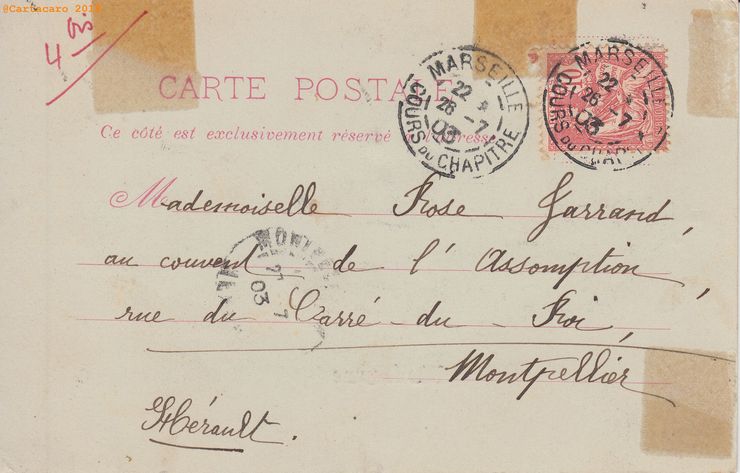 @Cartacaro 20
4 bis
CARTE POSTALE
Ce côté est exclusivement réservé à l'adresse
MARSEILLE
22
26 -7
03
COURS DU CHAPITRE
MARSEILLE
22
26 -7
03
COURS DU CHAP
Mademoiselle Rose Jarrand,
au couvent de l'Assomption,
rue du Carré-du-Roi,
Montpellier
Hérault.
27 7
03